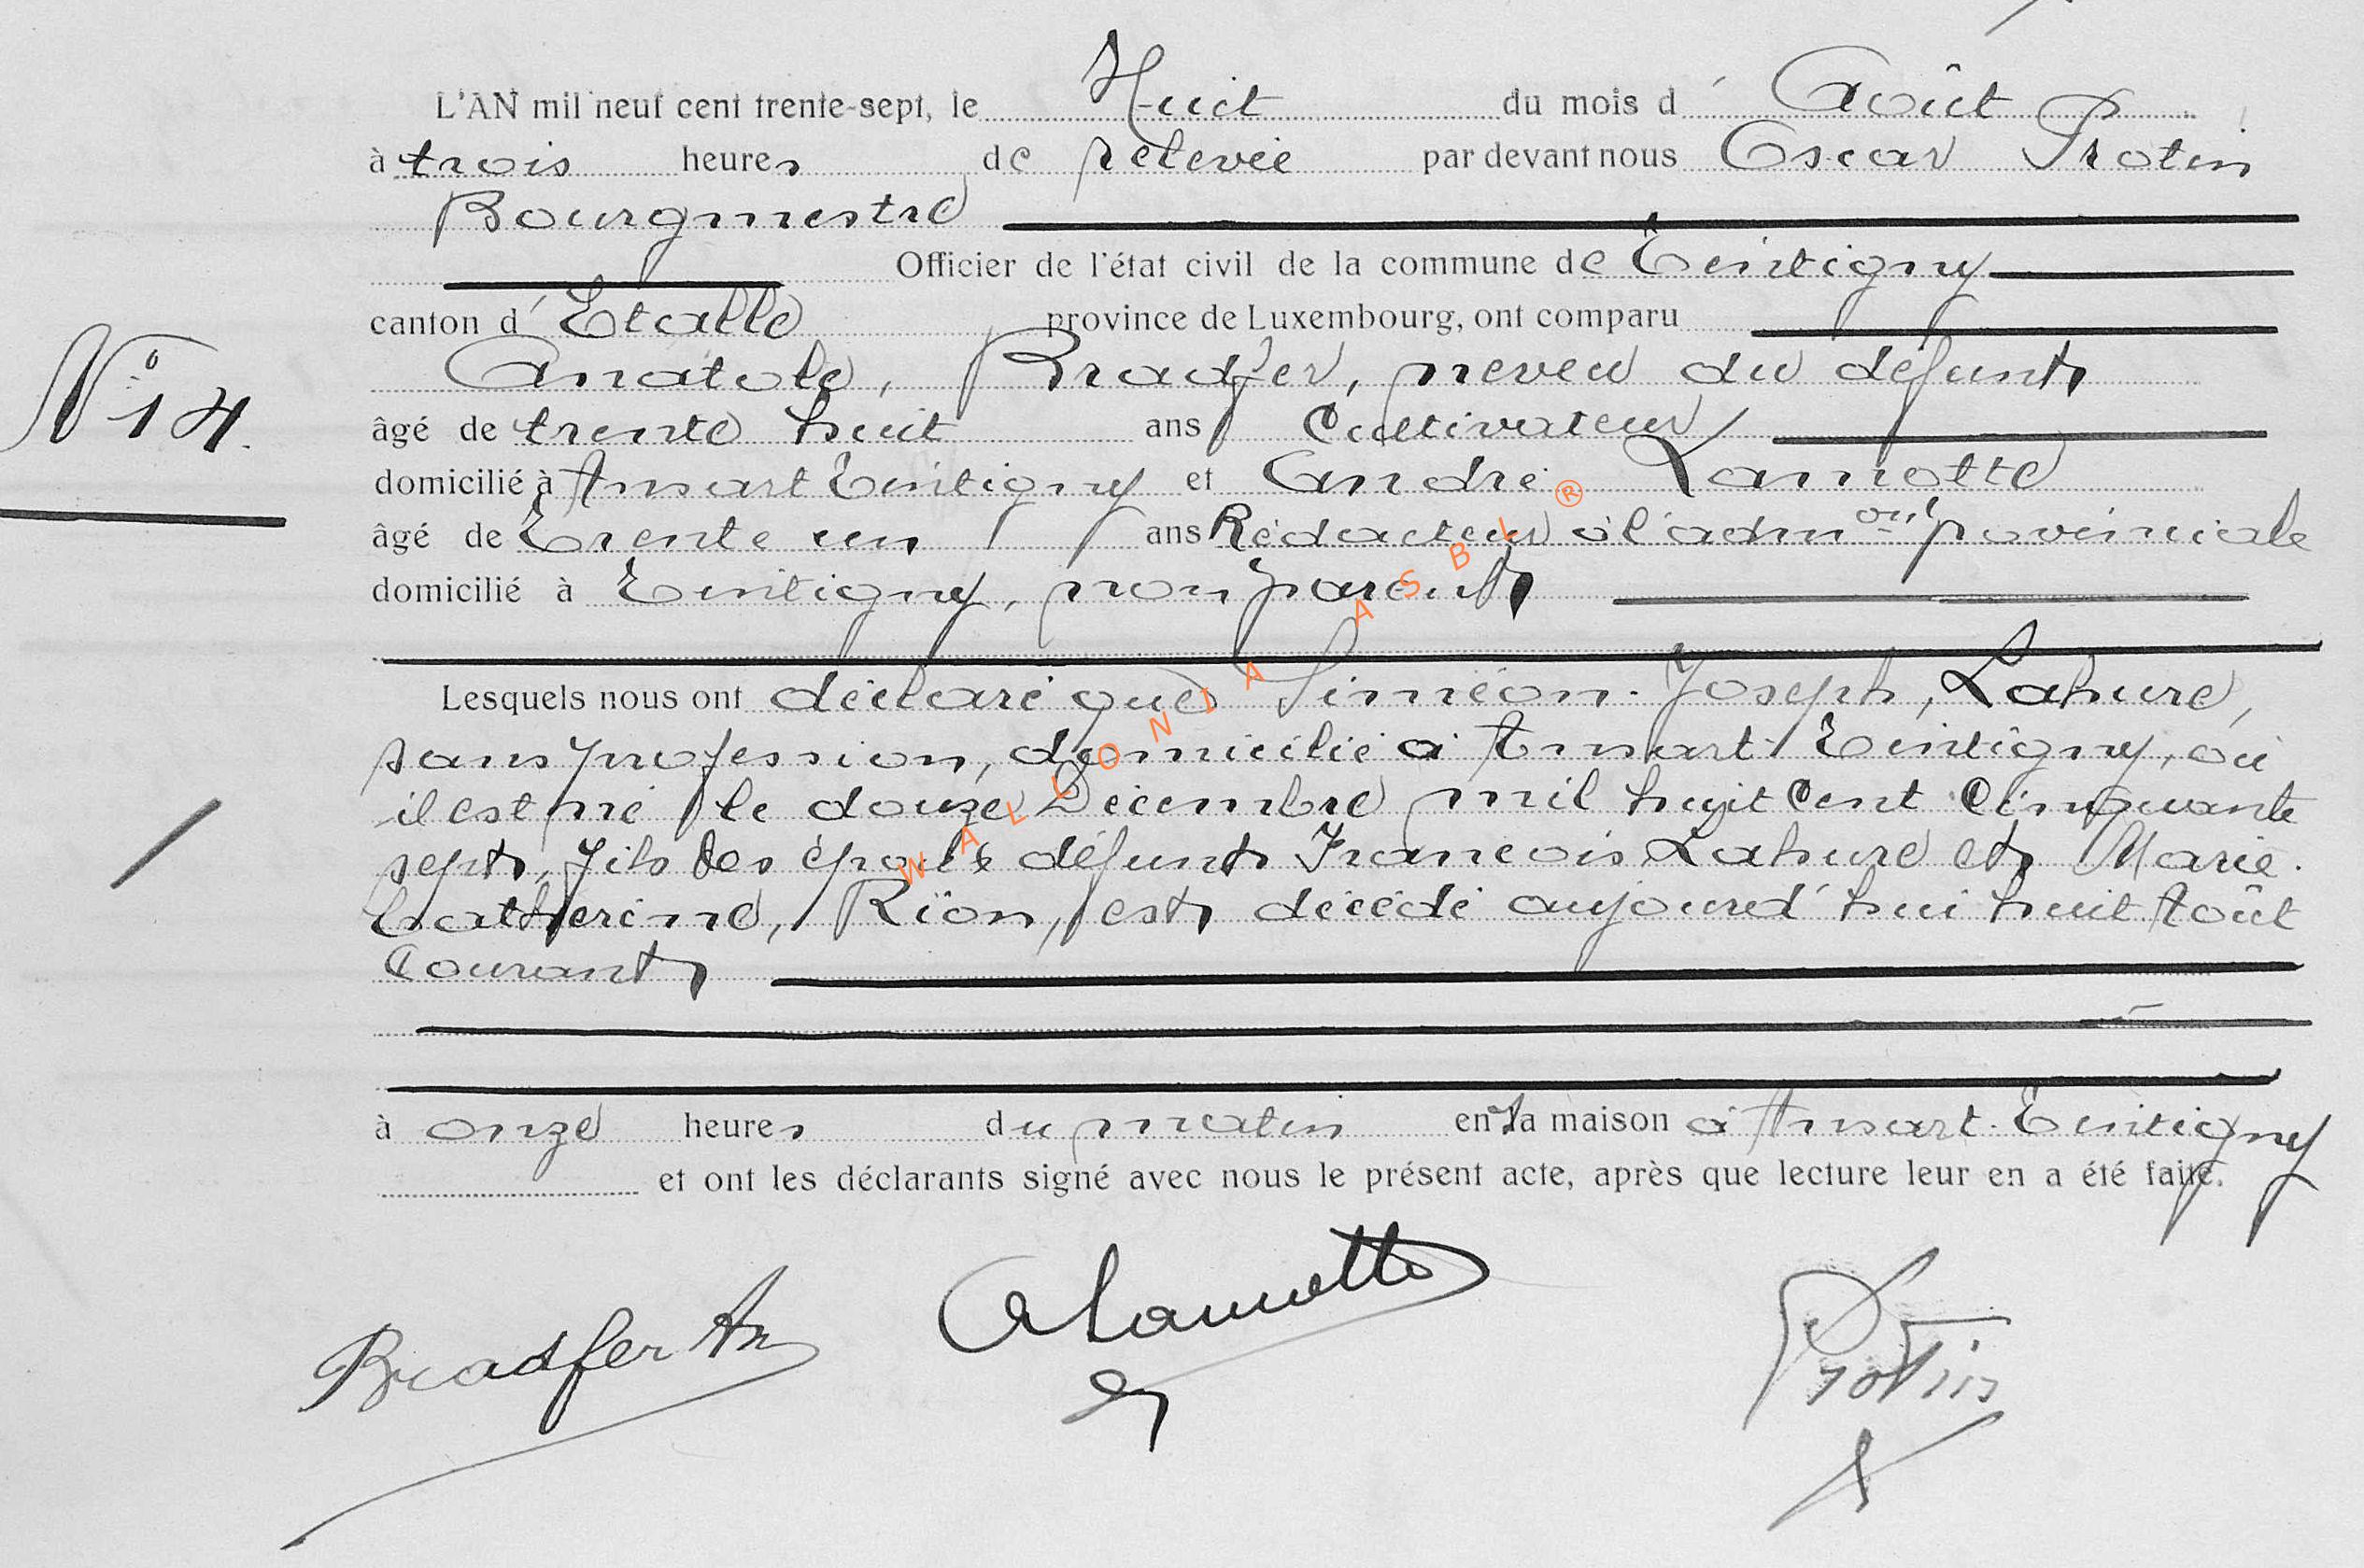 L'AN mil neuf cent trente-sept, le Huit du mois d' Août
à trois heures de relevée par devant nous Oscar Protin
Bourgmestre
Officier de l'état civil de la commune de Tintigny
canton d' Etalle province de Luxembourg, ont comparu
Anatole, Bradfer, neveu du défunt
N° 14.
âgé de trente huit ans Cultivateur
domicilié à Ansart Tintigny et André Lamotte
âgé de Trente un ans Rédacteur à l'admon provinciale
domicilié à Tintigny, non parent
Lesquels nous ont déclaré que Siméon-Joseph, Lahure,
sans profession, domicilié à Ansart-Tintigny, où
il est né le douze Décembre mil huit Cent Cinquante
sept, fils des époux défunts Francois Lahure et Marie-
Catherine, Rion, est décédé aujourd'hui huit Août
Courant
à onze heures du matin en sa maison à Ansart-Tintigny
et ont les déclarants signé avec nous le présent acte, après que lecture leur en a été faite.
Bradfer An
A Lamotte
Protin
WALLONIA ASBL ®